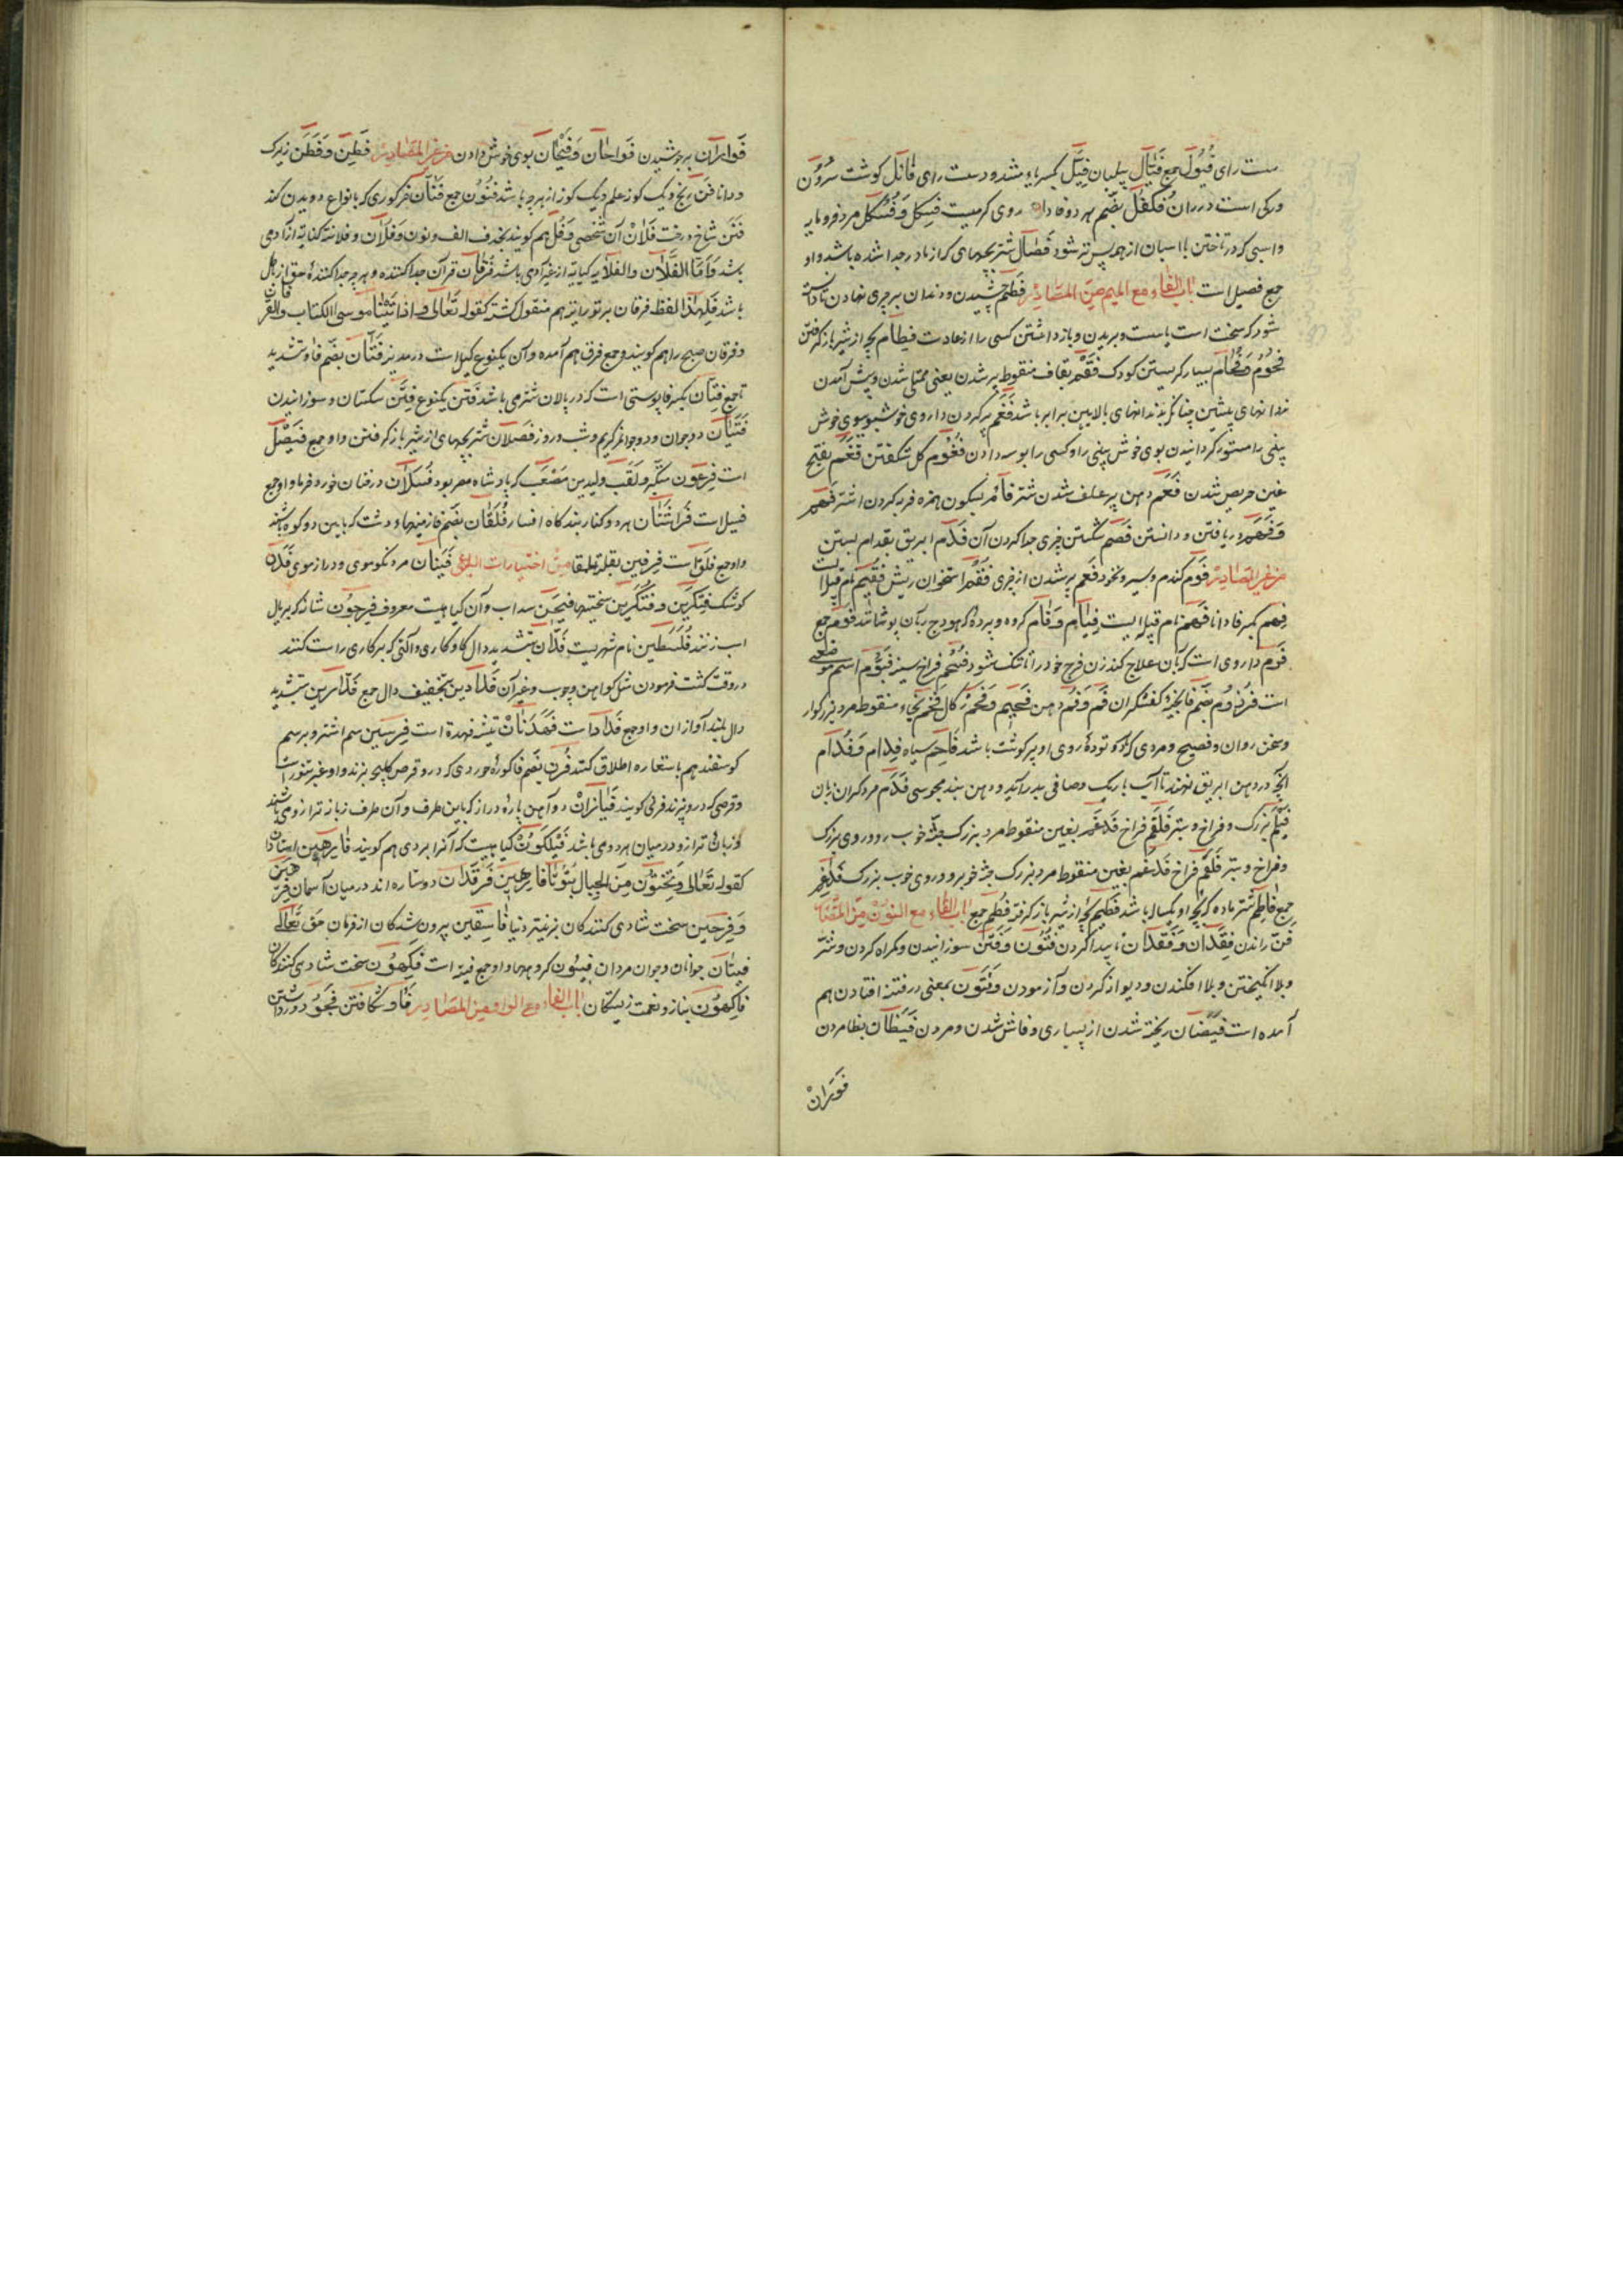 ست رای فُیُول جمع فَیّال پیلبان فِیَّل بکسر یاء مشدد سست رای فَائل گوشت سُرُون
ورکی است در ران فُکفُل بضم هر دو فا دا روی کرمیست فِسکِل وَ فُسکُل مرد فرومایه
واسبی که در تاختن با اسبان از همه پس‌تر شود فِصَال شتر بچهای که از مادر جدا شده باشد واو
جمع فصیل است باب الفاء مع المیم من المصادر فَطم چشیدن و دندان بر چیزی نهادن تا دانسته
شود که سخت است یا سست و بریدن و بازداشتن کسی را از عادت فِطَام بچه از شیر باز گرفتن
فُحُوم وَ فُحَام بسیار گریستن کودک فَقَم بقاف منقوط پر شدن یعنی ممتلی شدن و پیش آمدن
دندانهای پیشین چنانکه بدندانهای بالایین برابر باشد فَغَم پر کردن داروی خوشبو بوی خوش
بینی را مستور گردانیدن بوی خوش بینی را و کسی را بوسه دادن فُغُوم گل شکفتن فَغَم بفتح
غین حریص شدن فَعَم دهن پر علف شدن شتر فَأم بسکون همزه فربه کردن اشتر فَهم
وَ فَهَم دریافتن و دانستن فَصم شکستن چیزی جدا کردن آن فَدَام ابریق بقدام بستن
من غیر المصادر فُوم گندم و سیر و نخود فَعم پر شدن از چیزی فَقُم استخوان ریش فُقَیم نام قبیله ایست
فَهِم بکسر فا دانا فَهم نام قبیله ایست فِیَام وَ فِأَام گروه و پرده که هودج بآن پوشانند فُوَم جمع
فَرم داروی است که بآن علاج کند زن فرج خود را تا تنک شود فُسحُم فراخ سینه فَیُّوم اسم موضعی
است فُرزُوم بضم فا بخیزه کفشگران فَم وَ فُم دهن فَحِیم وَ فَحم زگال فَخم بخاء منقوط مرد بزرگوار
و سخن روان و فصیح و مردی که تودهٔ روی او پر گوشت باشد فَاحِم سیاه فِدَام وَ فَدَام
آنچه در دهن ابریق نهند تا آب باریک و صافی بدر آید و دهن بند مجوسی فَدم مرد گران زبان
فَیلَم بزرگ و فراخ و ستبر فَلقَم فراخ فَدغَم بغین منقوط مرد بزرگ جثه خوب رو و روی بزرگ
و فراخ و ستبر فَلقَم فراخ فَدغَم بغین منقوط مرد بزرگ جثه خوبرو و روی خوب بزرگ فَدَاغِم
جمع فَاطِم شتر ماده که بچه او یکساله باشد فَطِیم بچه از شیر باز گرفته فُطُم جمع باب الفاء مع النون من المصادر
فَن راندن فِقدَان وَ فُقدَان ناپیدا کردن فُتُون وَ فَتن سوزانیدن و گمراه کردن و فتنه
و بلا انگیختن و بلا افکندن و دیوانه کردن و آزمودن و فُتُون بمعنی در فتنه افتادن هم
آمده است فَیَضَان ریخته شدن از بسیاری و فاش شدن و مردن فَیَظَان بظا مردن
فَوَرَانْ
فَوَرَان بر جوشیدن فَوَحَان وَ فَیَحَان بوی خوش دادن من غیر المصادر فَطِن وَ فَطُن زیرک
و دانا فَن رنج و یک گونه علم و یک گونه از هر چه باشد فُنُون جمع فَنَّان خر گوری که بانواع دویدن کند
فَنَن شاخ درخت فُلَانْ آن شخصی وَ فُل هم گویند بحذف الف و نون و فُلَان و فلانة کنایه از آدمی
باشد وَ أَمَّا الفُلَان والفُلَانة کنایة از غیر آدمی باشد فُرقَان قرآن جدا کننده و هر چه جدا کنندهٔ حق از باطل
باشد فَلِهٰذا لفظ فرقان بر توریة هم منقول گشته کقوله تَعَالی وَ اذ اتَینَا مُوسی الکتاب والفرقان
و فرقان صبح را هم گویند و جمع فرق هم آمده و آن یکنوع کیل است در مدینه فُتَّان بضم فا و تشدید
تا جمع فِتَان بکسر فا پوستی است که در پالان شتر می باشد فَتن یکنوع فِتَن سکستان و سوزانیدن
فَتَیَان دو جوان و دو جوانمرد کریم و شب و روز فُصلَان شتر بچهای از شیر باز گرفتن واو جمع فَصِیل
است فِرعَون متکبر و لقب ولید بن مصعب که پادشاه مصر بود فُسلَان درختان خورد خرما واو جمع
فسیل است فَرَاشَتَان هر دو کنار بندگاه افسار فُلقَان بضم فا زمینها و دشت که بابین دو کوه باشند
واو جمع فلق است فِرفِین بقلة الحمقا من اختیارات البدیعی فَینَان مرد نکوموی و دراز موی فَدَن
کوشک فِتَکرِین وَ فُتَکرِین سختیها فَیجَن سداب و آن گیاهیست معروف فِرجَون شانه که بریال
اسب زنند فِلَسطِین نام شهریست فَدَّان بتشدید دال گاو کاری و آلتی که بر کاری راست کنند
در وقت کشت فرمودن مثل گوآهن و چوب و غیر آن فَدَادِین بتخفیف دال جمع فَدَّادِین بتشدید
دال بلند آوازان واو جمع فَدَّاد است فَهدَتَانْ تثنیه فهدة است فِرسِن سم اشتر و بر سم
گوسفند هم باستعاره اطلاق کنند فُرن بضم فا کورهٔ خوردی که در و قرص کلیجه پزند واو غیر تنور است
و قرصی که در و پزند فرنی گویند فَیَارَانْ دو آهن پارهٔ دراز که باین طرف و آن طرف زبانه ترازو می باشند
و زبان ترازو در میان هر دو می باشد فَیلَکُون گیاهیست که آنرا بردی هم گویند فَارِهِین استادان
کقوله تَعَالی وَ تَنحِتُونَ مِنَ الجِبَالِ بُیُوتًا فَارِهِین فَرقَدَان دو ستاره اند در میان آسمان فَرِحِین
وَ فَرِحَین سخت شادی کنندگان بزینت دنیا فَاسِقِین بیرون شدگان از فرمان حق تَعَالی
فِتیَان جوانان و جوان مردان فِئُون گروهها واو جمع فیة است فَکِهُون سخت شادی کنندگان
فَاکِهُون بناز و نعمت زیستگان باب الفاء مع الواو من المصادر فَأو شکافتن فَجو دور داشتن